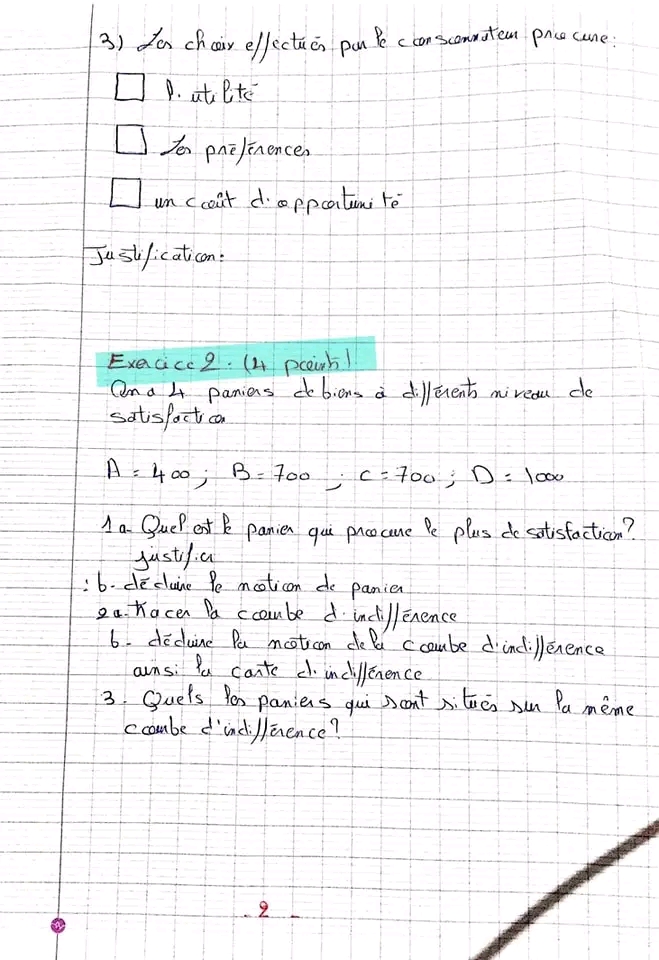 3) Les choix effectués par le consommateur procure:
l'utilité
Les préférences
un coût d'opportunité
Justification:
Exercice 2: (4 points)
On a 4 paniers de biens à différents niveau de
satisfaction
A = 400 ; B = 700 ; C = 700 ; D = 1000
1a- Quel est le panier qui procure le plus de satisfaction?
justifier
: b- déduire le notion de panier
2a- tracer la courbe d'indifférence
b- déduire la notion de la courbe d'indifférence
ainsi la carte d'indifférence
3- Quels les paniers qui sont situés sur la même
courbe d'indifférence?
- 2 -